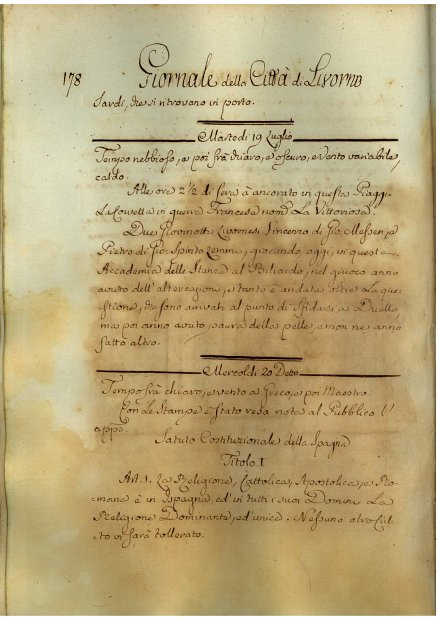 178 Giornale della Città di Livorno
Sardi, che si ritrovano in porto.
Martedi 19 Luglio
Tempo nebbioso, e poi frà chiaro, e oscuro, e vento variabile,
caldo.
Alle ore 2 1/2 di sera à ancorato in questa Piaggi
La Corvetta in guerra Francese nom.ª La Vittoriosa.
Due Giovinotti Livornesi Vincenzo di Gio. Massen, e
Pietro di Gio. Spirito Lemmi, giocando, oggi, in queste
Accademia delle Stanze al Biliardo, nel giuoco anno
avuto dell'altercazione, e tanto è andata oltre La que
stione, che sono arrivati al punto di Sfidarsi a Duello
ma poi anno avuto paura della pelle, e non ne anno
fatto altro.
Mercoldi 20 Detto
Tempo frà chiaro, e vento a Greco, e poi Maestro.
Con Le Stampe è stato resa nota al Pubblico l'
appo.
Satuto Costituzionale della Spagna
Titolo I
Art. 1. La Religione, Cattolica, Apostolica, e Ro-
mana è in Ispagna, ed'in tutti i suoi Domini La
Religione Dominante, ed'unica. Nessuno altro Cul-
to vi sarà tollerato.